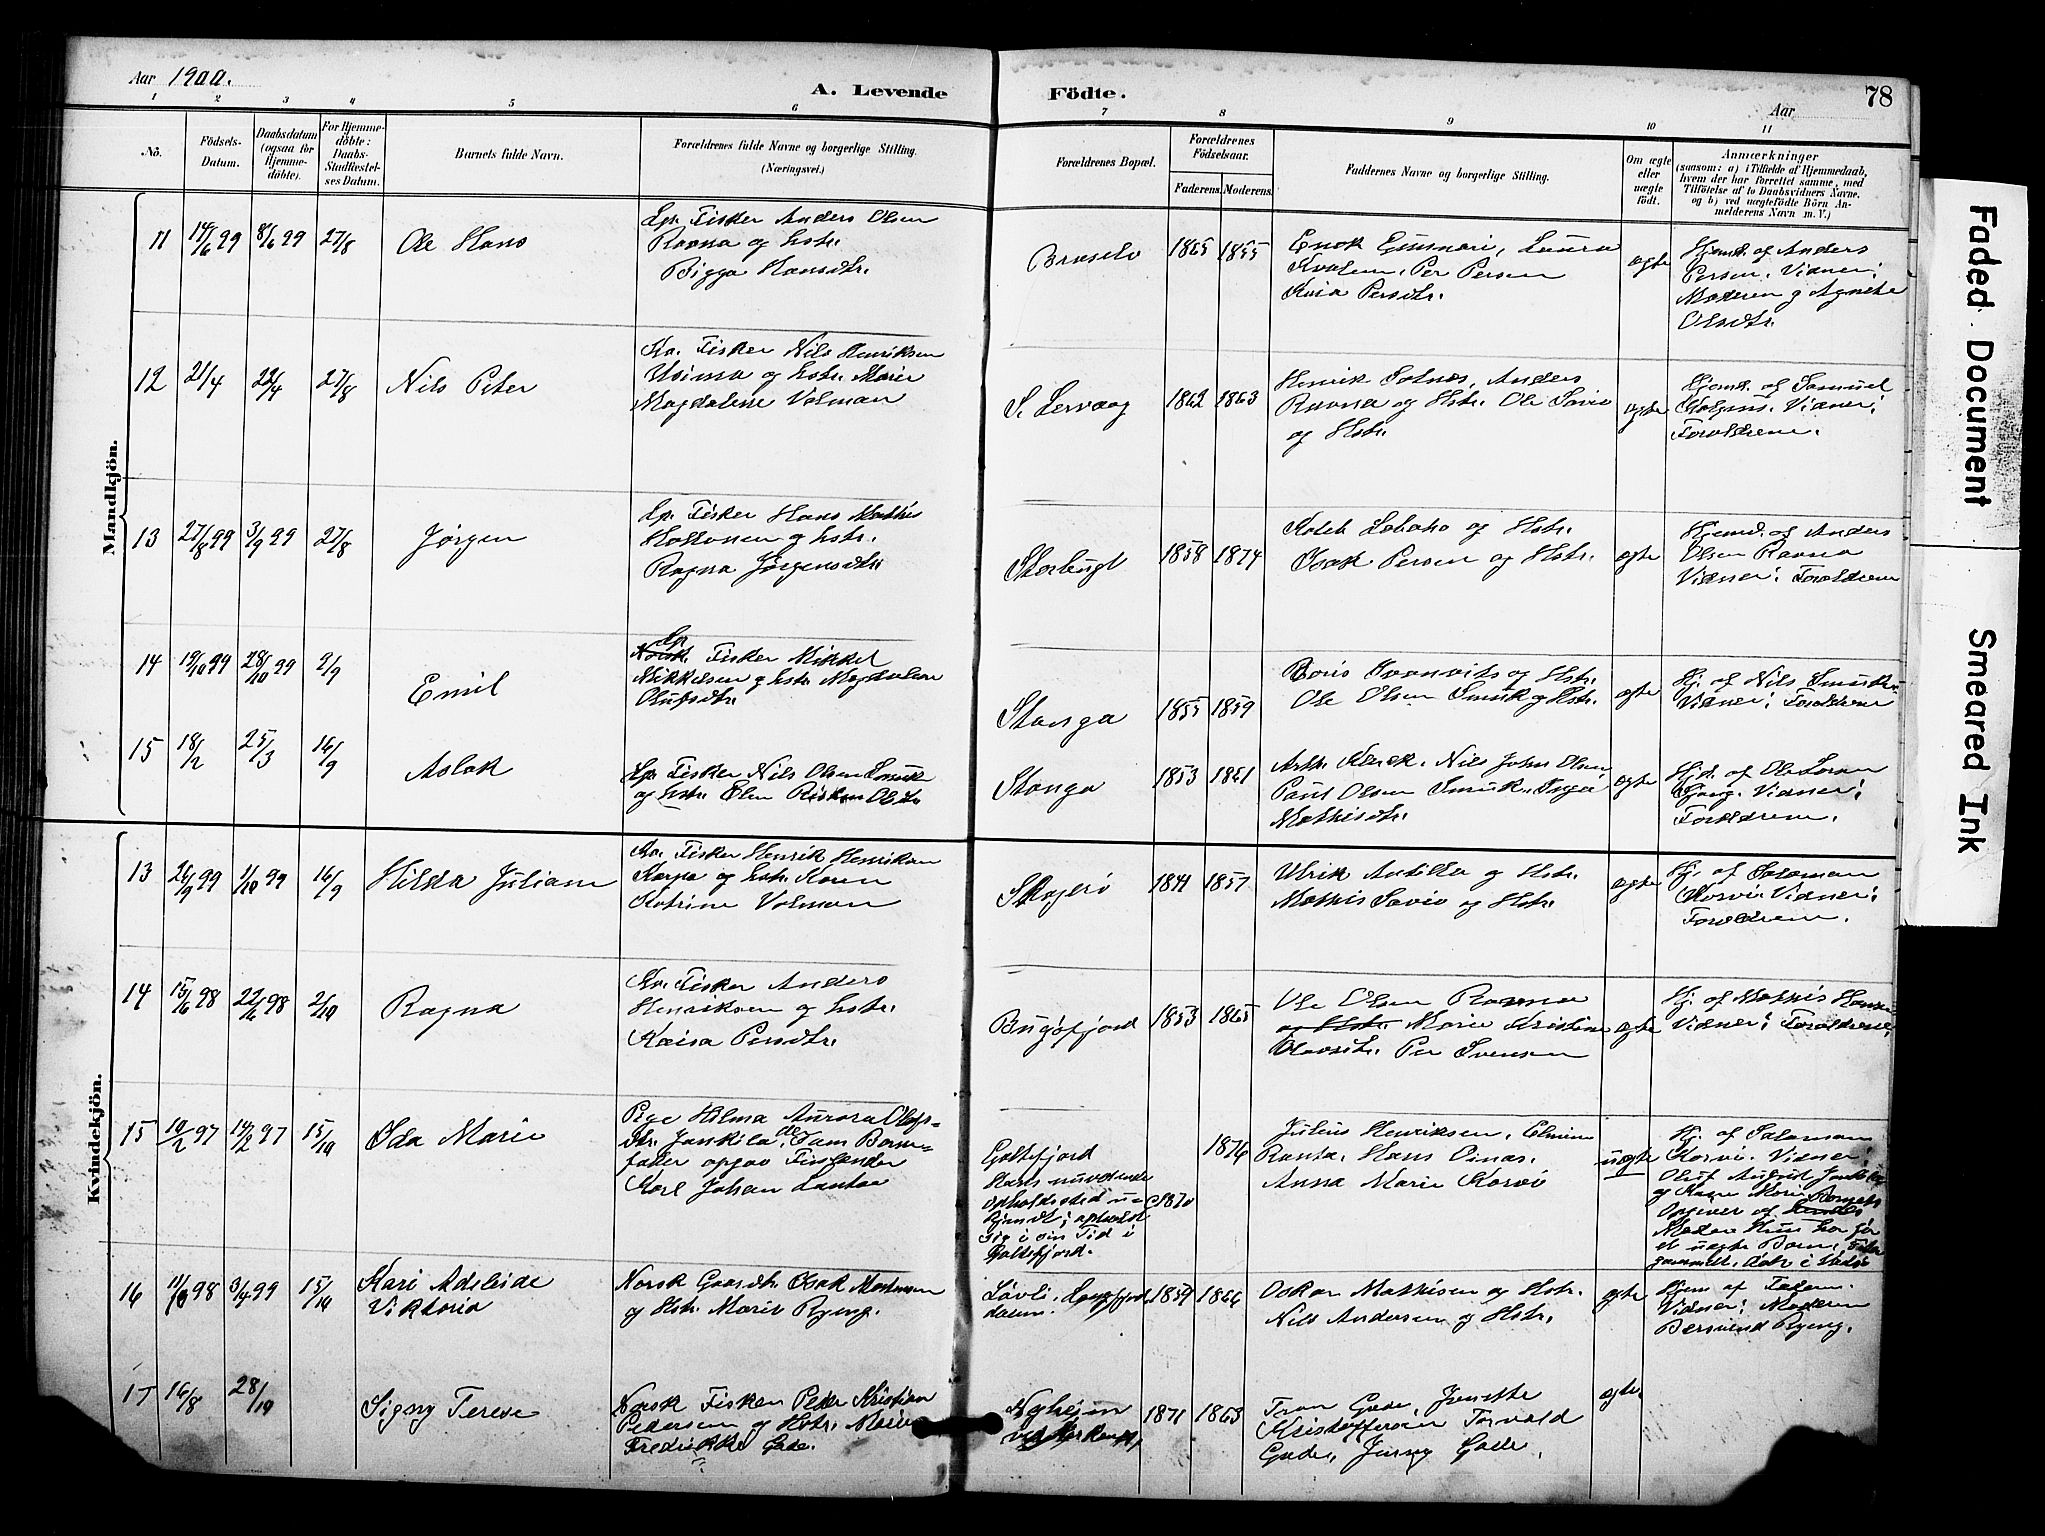 Aar 1900.
A. Levende Födte.
Aar
78
1 2 3 4 5 6 7 8 9 10 11
No.
Födsels-
Datum.
Daabsdatum
(ogsaa for
Hjemme-
döbte).
For Hjemme-
döbte:
Daabs-
Stadfæstel-
ses Datum.
Barnets fulde Navn.
Forældrenes fulde Navne og borgerlige Stilling.
(Næringsvei.)
Forældrenes Bopæl.
Forældrenes
Födselsaar.
Faderens. Moderens.
Faddernes Navne og borgerlige Stilling.
Om ægte
eller
uægte
födt.
Anmærkninger
(saasom: a) i Tilfælde af Hjemmedaab,
hvem der har forrettet samme, med
Tilföielse af to Daabsvidners Navne,
og b) ved uægtefödte Börn An-
melderens Navn m. V.)
Mandkjön.
11 14/6 99 8/6 99 27/8 Ole Hans
Lp. Fisker Anders Olsen
Ravna og hstr.
Bigga Hansdtr.
1865 1855
Enok Emmari, Laura
Kvalen, Per Persen
Kaia Persdtr.
ægte
Hjemd. af Anders
Persen. Vidner:
Moderen og Agnete
Olsdtr.
12 21/4 22/4 27/8 Nils Peter
Kv. Fisker Nils Henriksen
Usima og hstr. Marie
Magdalene Volman
S. Lervaag 1862 1863
Henrik Sotnæs, Anders
Ravna og Hstr. Ole Savio
og Hstr.
ægte
Hjemd. af Samuel
Vidner:
Forældrene.
13 27/8 99 3/9 99 27/8 Jørgen
Lp. Fisker Hans Mathis
og hstr.
Ragna Jørgensdtr.
Storbugt 1858 1874
Kaleb Labaha og Hstr.
Isak Persen og Hstr.
ægte
Hjemd. af Anders
Olsen Ravna
Vidner: Forældrene
14 19/10 99 28/10 99 2/9 Emil
Lp.
Norsk. Fisker Mikkel
Mikkelsen og hstr. Magdalene
Olufsdtr.
Stanga 1855 1859
Boris Ivanvits og Hstr.
Ole Olsen Smuk og Hstr.
ægte
Hj. af Nils Smuk.
Vidner: Forældrene
15 18/2 25/3 16/9 Aslak
Lp. Fisker Nils Olsen Smuk
og hstr. Elen
Stanga 1853 1861
Nils John Olsen,
Paul Olsen Smuk. Inga
Mathisdtr.
ægte
Hjd. af Ole Larsen
Vidner:
Forældrene.
Kvindekjön.
13 26/9 99 1/10 99 16/9 Hilda Juliane
Kv. Fisker Henrik Henriksen
Karpa og hstr. Karen
Katrine Volman
Skogerø 1841 1857
Ulrik Antilla og Hstr.
Mathis Savio og Hstr.
ægte
Hj. af Salomon
Korvi. Vidner:
Forældrene.
14 15/6 98 22/6 98 2/10 Ragna
Kv. Fisker Anders
Henriksen og hstr.
Kaisa Persdtr.
Bugøfjord 1853 1865
Ole Olsen Ravna
og Hstr. Marie Kristine
Per Svensen
ægte
Hj. af Mathis Hansen
Vidner: Forældrene.
15 10/2 97 14/2 97 15/10 Ida Marie
Pige Hilma Aurora Olofs-
dtr. Jankila, Som Barne-
fader opgav Finlænder
Karl Johan Lantto
Goltefjord
Hans nuværende
opholdssted u-
kjendt; opholdt
sig i sin Tid i
Goltefjord.
1870 1876
Julius Henriksen, Elmine
Ranta, Hans Oinas,
Anna Marie Korvi
uægte
Hj. af Salomon
Korvi. Vidner:
Oluf August Jankila
og Karen Marie
Opgiver af Barnets
Moder. Hun har før
et uægte Barn.
16 11/10 98 3/4 99 15/10 Kari Adelaide
Viktoria
Norsk Gaardbr. Isak Mortensen
og Hstr. Marie Ryeng.
Løvli, Langfjord-
dalen. 1859 1866
Oskar Mathisen og Hstr.
Nils Andersen og Hstr.
ægte
Hjem. af Faderen.
Vidner: Moderen
Bersvend Ryeng.
17 16/8 28/10 Signy Terese
Norsk Fisker Peter Kristian
Pedersen og Hstr. Marie
Fredrikke Gade.
1871 1863
Tron Gade, Jenette
Kristoffersen Torvald
Gade, Jenny Gade.
ægte
Faded Document
Smeared Ink